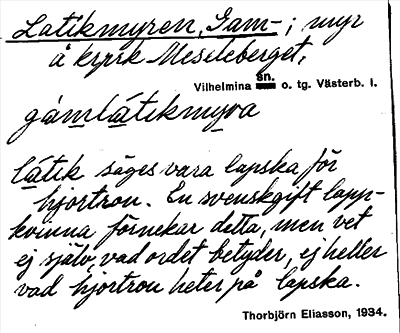 Latikmyren, Gam-; myr
å krprk Meseleberget,
Vilhelmina sn. o. tg. Västerb. l.
gámlátikmyra
látik säges vara lapska för
hjortron. En svenskgift lapp-
kvinna förnekar detta, men vet
ej själv, vad ordet betyder, ej heller
vad hjortron heter på lapska.
Thorbjörn Eliasson, 1934.